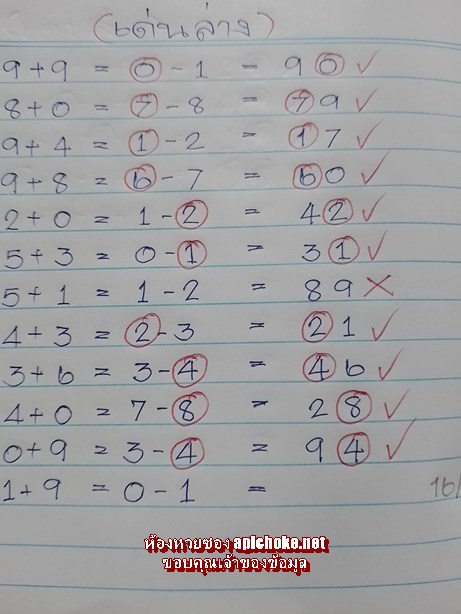 (เด่นล่าง)
9+9 = 0-1 = 90 ✓
8+0 = 7-8 = 79 ✓
9+4 = 1-2 = 17 ✓
9+8 = 6-7 = 60 ✓
2+0 = 1-2 = 42 ✓
5+3 = 0-1 = 31 ✓
5+1 = 1-2 = 89 ✗
4+3 = 2-3 = 21 ✓
3+6 = 3-4 = 46 ✓
4+0 = 7-8 = 28 ✓
0+9 = 3-4 = 94 ✓
1+9 = 0-1 = 16/
ห้องหวยซอง apichoke.net
ขอบคุณเจ้าของข้อมูล